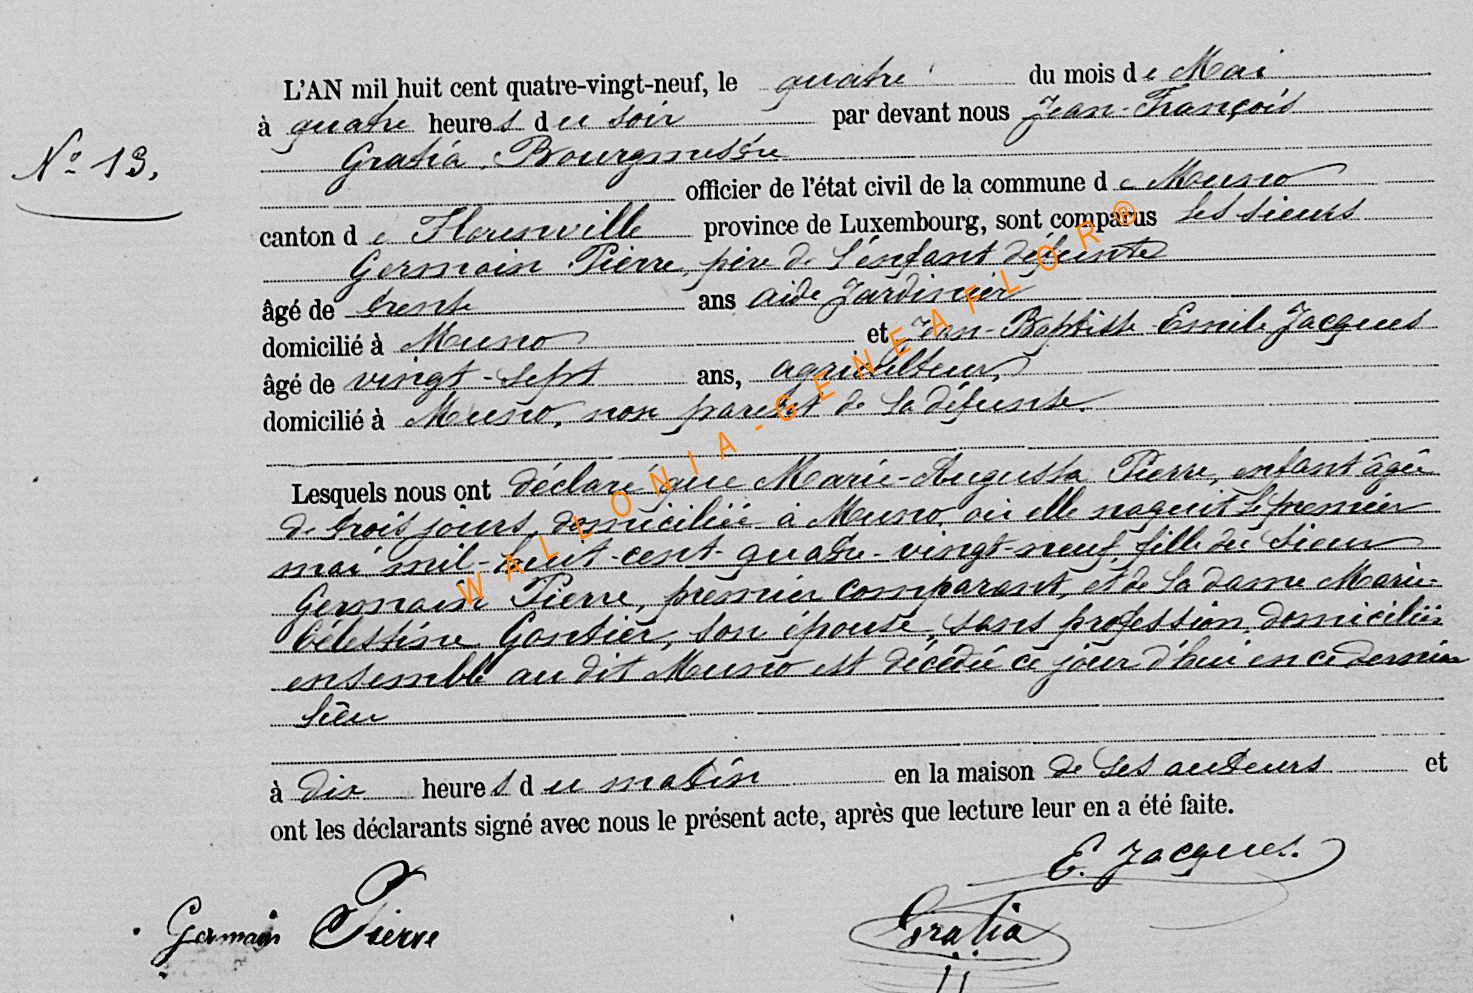 L'AN mil huit cent quatre-vingt-neuf, le quatre du mois de Mai
à quatre heures du soir par devant nous Jean-François
N° 13. Gratia, Bourgmestre
officier de l'état civil de la commune de Muno
canton de Florenville province de Luxembourg, sont comparus les sieurs
Germain Pierre, père de l'enfant défunte
âgé de trente ans aide Jardinier
domicilié à Muno et Jean-Baptiste Emile Jacques
âgé de vingt-sept ans, agriculteur,
domicilié à Muno, non parent de la défunte.
Lesquels nous ont déclaré que Marie-Augusta Pierre, enfant âgée
de trois jours, domiciliée à Muno, où elle naquit le premier
mai mil-huit-cent-quatre-vingt-neuf, fille du sieur
Germain Pierre, premier comparant, et de la dame Marie-
Célestine Gontier, son épouse, sans profession, domiciliés
ensemble au dit Muno est décédée ce jour d'hui en ce dernier
lieu
à dix heures du matin en la maison de ses auteurs et
ont les déclarants signé avec nous le présent acte, après que lecture leur en a été faite.
E. Jacques.
Germain Pierre Gratia
WALLONIA-GENEAFLOR®